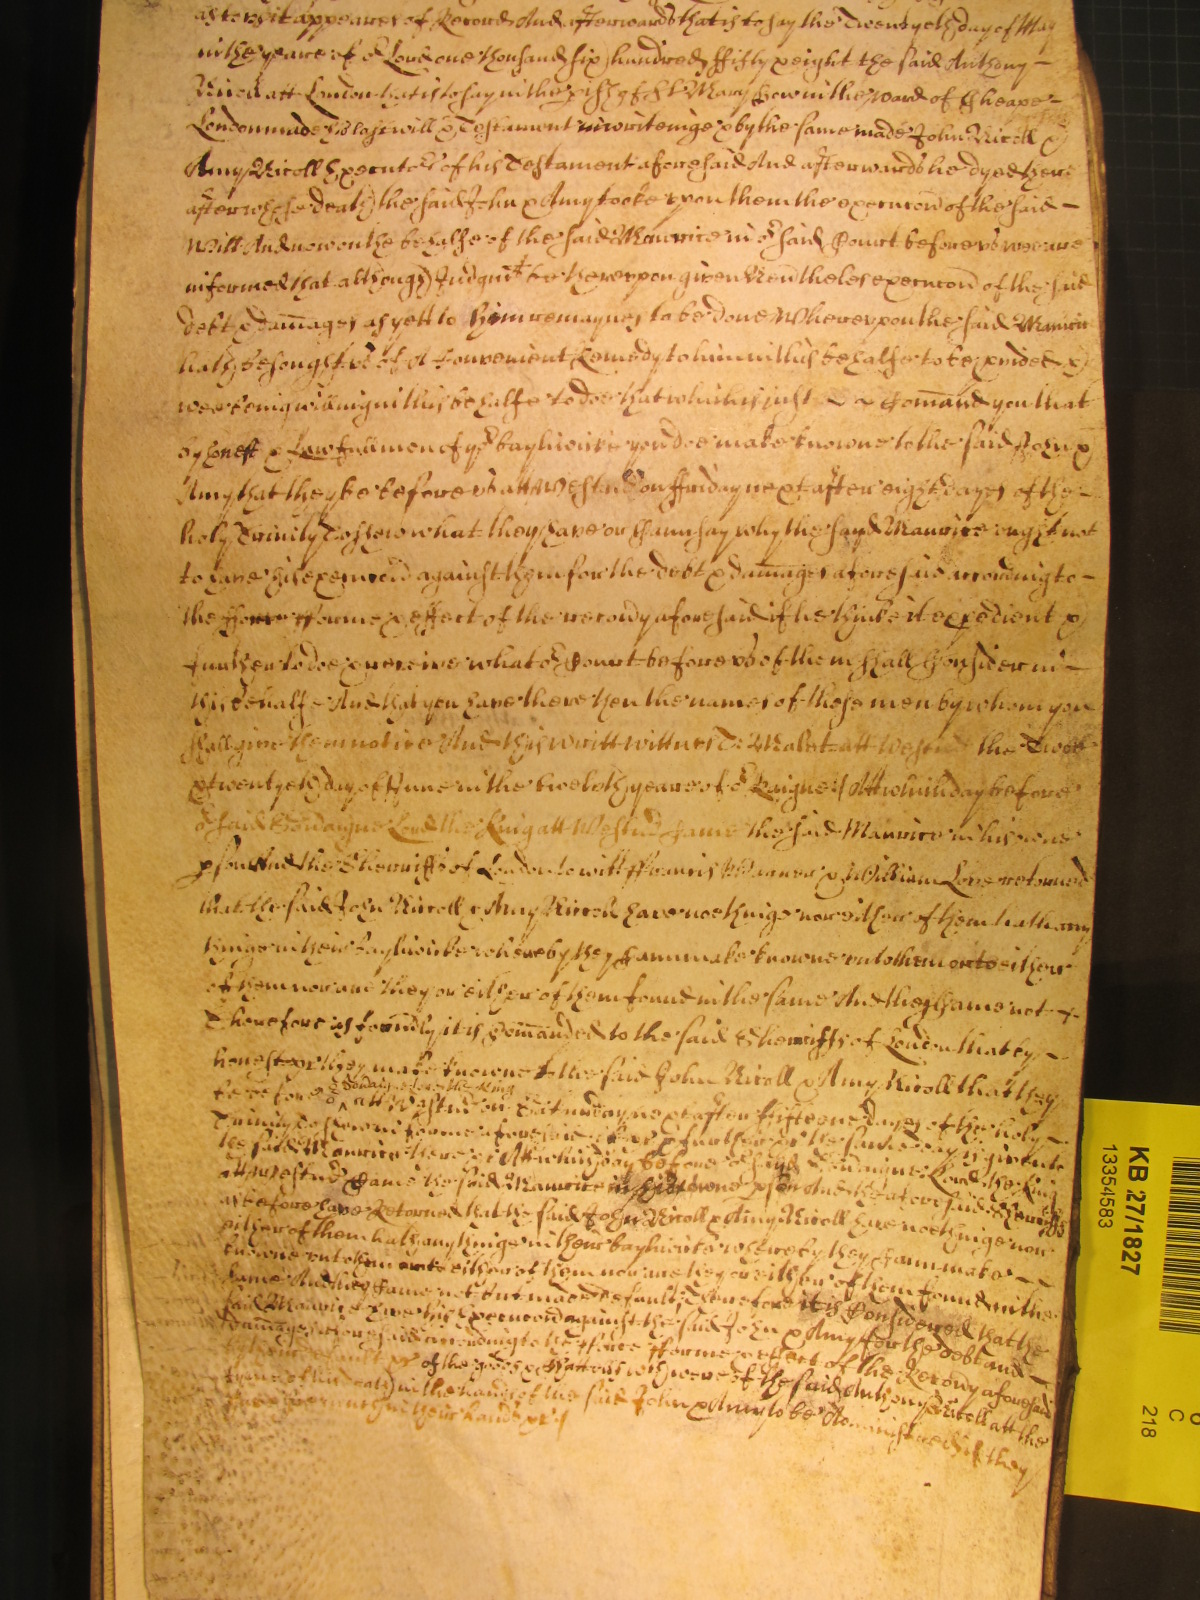 as to us it appeares of Record And afterwards that is to say the Twentyeth day of May
in the yeare of or Lord one thousand six hundred fifty & eight the said Anthony
Nicoll att London that is to say in the pish of St Mary Bow in the ward of Cheape
London made his last will & Testament in writeinge & by the same made John Nicoll &
Amy Nicoll Executors of his Testament aforesaid And afterwards he dyed there
after whose death the said John & Amy tooke upon them the execucon of the said
Will And now on the behalfe of the said Maurice in or said Court before us wee are
informed that although Judgmt be thereupon given Neutheles execucon of the said
debt & damages as yett to him remaynes to be done Whereupon the said Maurice
hath besought us of A Convenient Remedy to him in this behalfe to be pvided &
wee being willing in this behalfe to doe that which is just Comand you that
by honest & Lawfull men of yor bayliwicke you doe make knowne to the said John &
Amy that they be before us att Westmr on ffriday next after eight dayes of the
holy Trinity To shew what they have or can say why the sayd Maurice ought not
to have his execucon against them for the debt & damages aforesaid according to
the fforce fforme & effect of the recovy aforesaid if he thinke it expedient &
further to doe & receive what or Court before us of them shall Consider in
this behalfe And that you have there then the names of those men by whom you
shall give them notice And this writt wittnes T: Malet att Westmr the Two
& twentyeth day of June in the twelvth yeare of or Raigne Att which day before
or said Sovaigne Lord the King att Westmr Came the said Maurice in his owne
pson And the Sheriffs of London to witt ffrancis Warner & William Love retorned
that the said John Nicoll & Amy Nicoll have nothinge nor either of them hath any
thinge in their bayliwicke whereby they Cann make knowne unto them or to either
of them nor are they or either of them found in the same And they Came not
Therefore as secondly it is Comanded to the said Sheriffs of London that by
honest &c they make knowne to the said John Nicoll & Amy Nicoll that they
be before or Sovaigne Lord the King att Westmr on Saturday next after fifteene dayes of the holy
Trinity To shew in forme aforesaid &c & further &c the same day is given to
the said Maurice there &c Att which day before or said Sovaigne Lord the King
att Westmr Came the said Maurice in his owne pson And the aforesaid Sheriffs
as before have Retorned that the said John Nicoll & Amy Nicoll have nothinge nor
either of them hath any thinge in their bayliwicke whereby they Cann make
knowne unto them or to either of them nor are they or either of them found in the
same And they Came not but made default Therefore it is Considered that the
said Maurice have his Execucon against the said John & Amy for the debt and
damages aforesaid according to the fforce fforme & effect of the Recovy aforesaid
by their default &c of the goods & Chattells wch were of the said Anthony Nicoll att the
tyme of his death in the hands of the said John & Amy to be Administred if they
have soe much in their hands &c
KB 27/1827
13354583
C
218